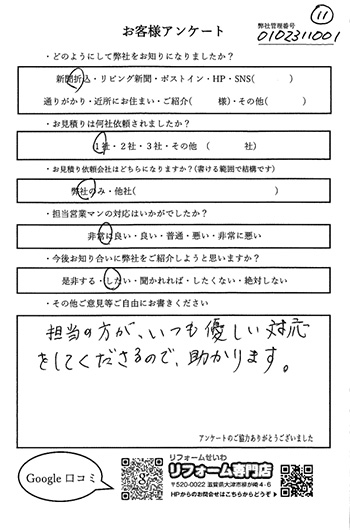 11
お客様アンケート
弊社管理番号
0102311001
・どのようにして弊社をお知りになりましたか？
新聞折込・リビング新聞・ポストイン・HP・SNS(　　　)
通りがかり・近所にお住まい・ご紹介(　　　様)・その他(　　　)
・お見積りは何社依頼されましたか？
1社・2社・3社・その他　(　　　社)
・お見積り依頼会社はどちらになりますか？(書ける範囲で結構です)
弊社のみ・他社(　　　)
・担当営業マンの対応はいかがでしたか？
非常に良い・良い・普通・悪い・非常に悪い
・今後お知り合いに弊社をご紹介しようと思いますか？
是非する・したい・聞かれれば・したくない・絶対しない
・その他ご意見等ご自由にお書きください
担当の方が、いつも優しい対応
をしてくださるので、助かります。
アンケートのご協力ありがとうございました
Google 口コミ
リフォームせいわ
リフォーム専門店
〒520-0022 滋賀県大津市柳が崎4-6
HPからのお問合せはこちらからどうぞ